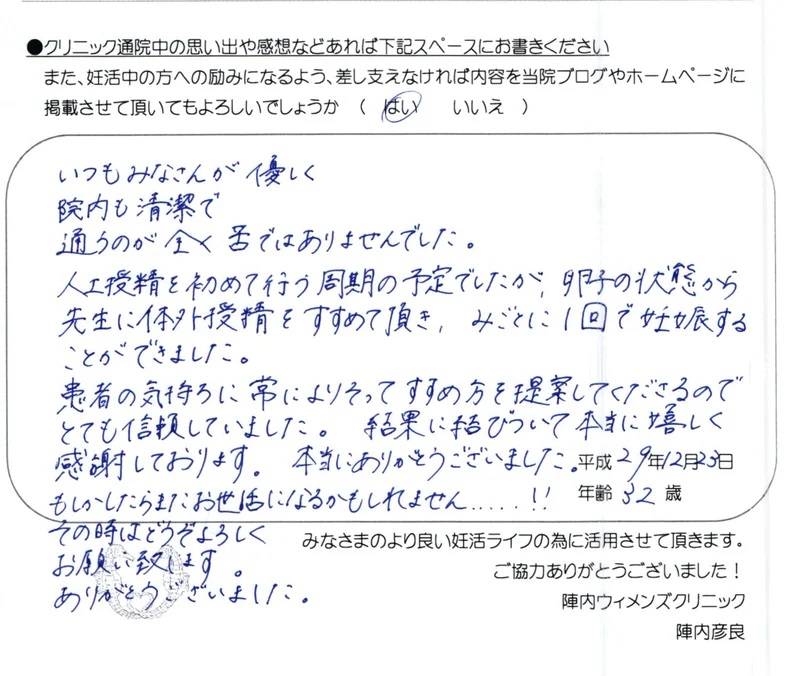 ●クリニック通院中の思い出や感想などあれば下記スペースにお書きください
また、妊活中の方への励みになるよう、差し支えなければ内容を当院ブログやホームページに
掲載させて頂いてもよろしいでしょうか （ はい いいえ ）
いつもみなさんが 優しく
院内も清潔で
通うのが全く苦ではありませんでした。
人工授精を初めて行う周期の予定でしたが、卵子の状態から
先生に体外授精をすすめて頂き、みごとに1回で妊娠する
ことができました。
患者の気持ちに常によりそってすすめ方を提案してくださるので
とても信頼していました。 結果に結びついて本当に嬉しく
感謝しております。 本当にありがとうございました。
平成29年12月23日
もしかしたらまたお世話になるかもしれません.....!!
年齢 32 歳
その時はどうぞよろしく
お願い致します。
ありがとうございました。
みなさまのより良い妊活ライフの為に活用させて頂きます。
ご協力ありがとうございました！
陣内ウィメンズクリニック
陣内彦良